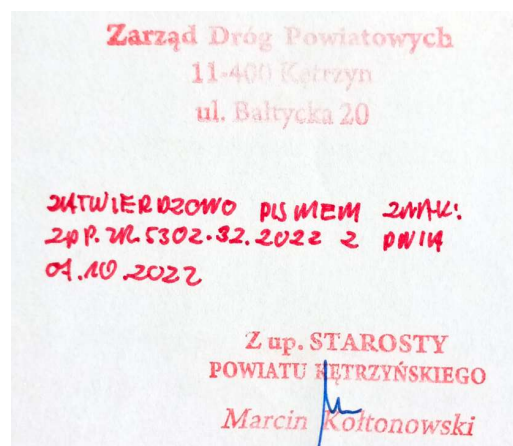 Zarząd Dróg Powiatowych
11-400 Kętrzyn
ul. Bałtycka 20
ZATWIERDZONO PISMEM ZNAK:
2022 Z DNIA
10.2022
Z up. STAROSTY
POWIATU KĘTRZYŃSKIEGO
Marcin Kołtonowski